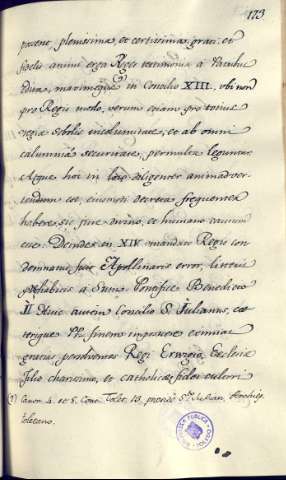 173
parent, plenissima, et certissima grati, et
fidelis animi erga Reges testimonia à
maximeque in Concilio XIII. ubi non
pro Rege modo, verum etiam pro totius
regia sobolis incolumitate, et ab omni
calumnia securitate, permulta leguntur.
Atque hoc in loco diligenter animadver-
tendum est, eiusmodi decreta frequenter
habere se jure divino, et humano
esse. Deinde in XIV. mandato Regis con-
demnatus fuit Apollinaris error, litteris
à Summo Pontifice Benedicto
II. Huic autem Concilio S. Julianus, cæ-
terique PP. finem imposuere eximias
gratias persolventes Regi Ervigio, Ecclesiæ
filio charissimo, et catholicæ fidei cultori
(1) Canon 4. et 8. Conc. Tolet. 13. præside Sto. Julian. Archiep.
toletano.
BIBLIOTECA PUBLICA
TOLEDO